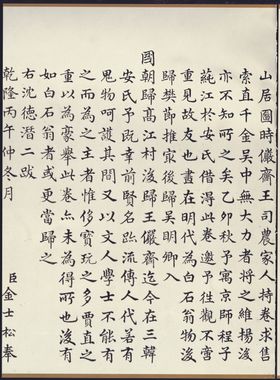 山居圖時儼齋王司農家人持卷求售
索直千金吳中無大力者將之維揚後
亦不知所之矣乙卯秋予寓京師程子
蒓江於安氏借得此卷邀予往觀不啻
重見故友也畫在明代為白石翁物後
歸樊節推後歸吳明卿入
國朝歸高江村後歸王儼齋迄今在三韓
安氏予既幸前賢名跡流傳人代若有
鬼物呵護其間又以文人學士不能有
之而為之主者惟侈寶玩之多賈直之
重以為豪舉此卷亦未為得所也後有
如白石翁者或更當歸之
右沈德潛二跋
乾隆丙午仲冬月 臣金士松奉